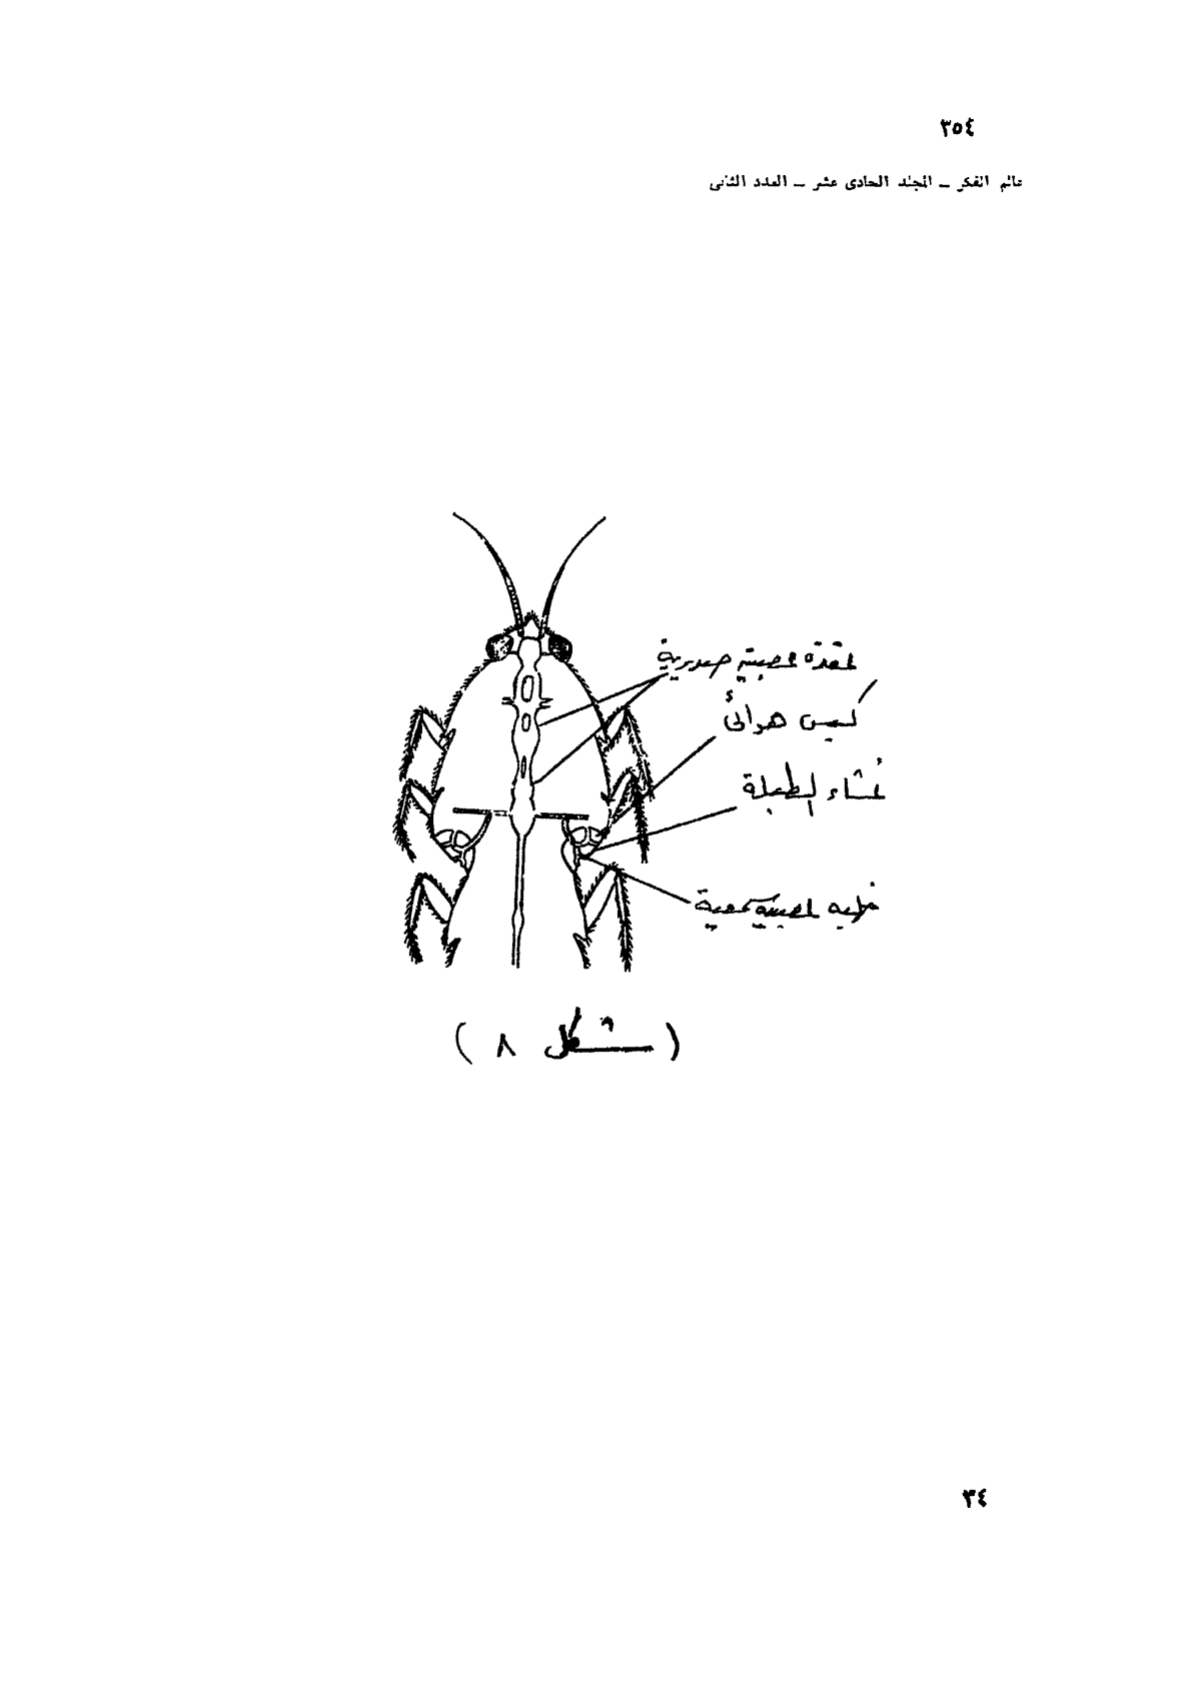 ٣٥٤
عالم الفكر ــ المجلد الحادى عشر ــ العدد الثانى
عقدة عصبية صدرية
كيس هوائى
غشاء الطبلة
خليه عصبية سمعية
( شكل ٨ )
٣٤